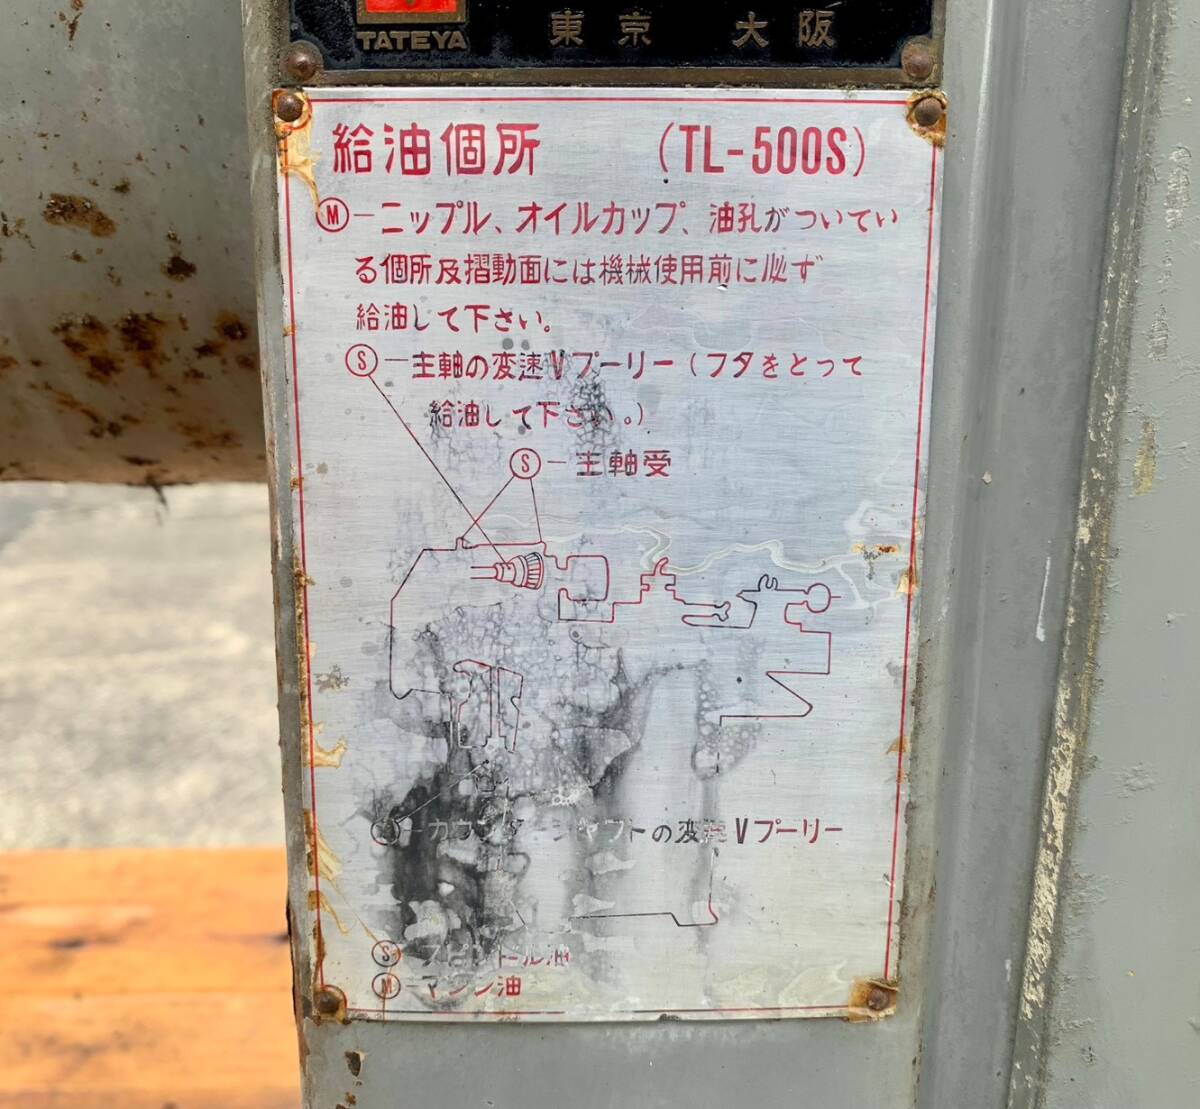 TATEYA 東京 大阪
給油個所 (TL-500S)
Ⓜ−ニップル、オイルカップ、油孔がついてい
る個所及摺動面には機械使用前に必ず
給油して下さい。
Ⓢ−主軸の変速Vプーリー(フタをとって
給油して下さい。)
Ⓢ−主軸受
−カウンターシャフトの変速Vプーリー
Ⓢ−スピンドル油
Ⓜ−マシン油